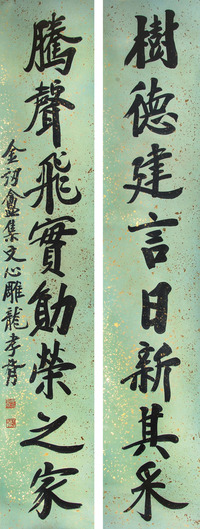 樹德建言日新其采
騰聲飛實勛榮之家
集文心雕龍